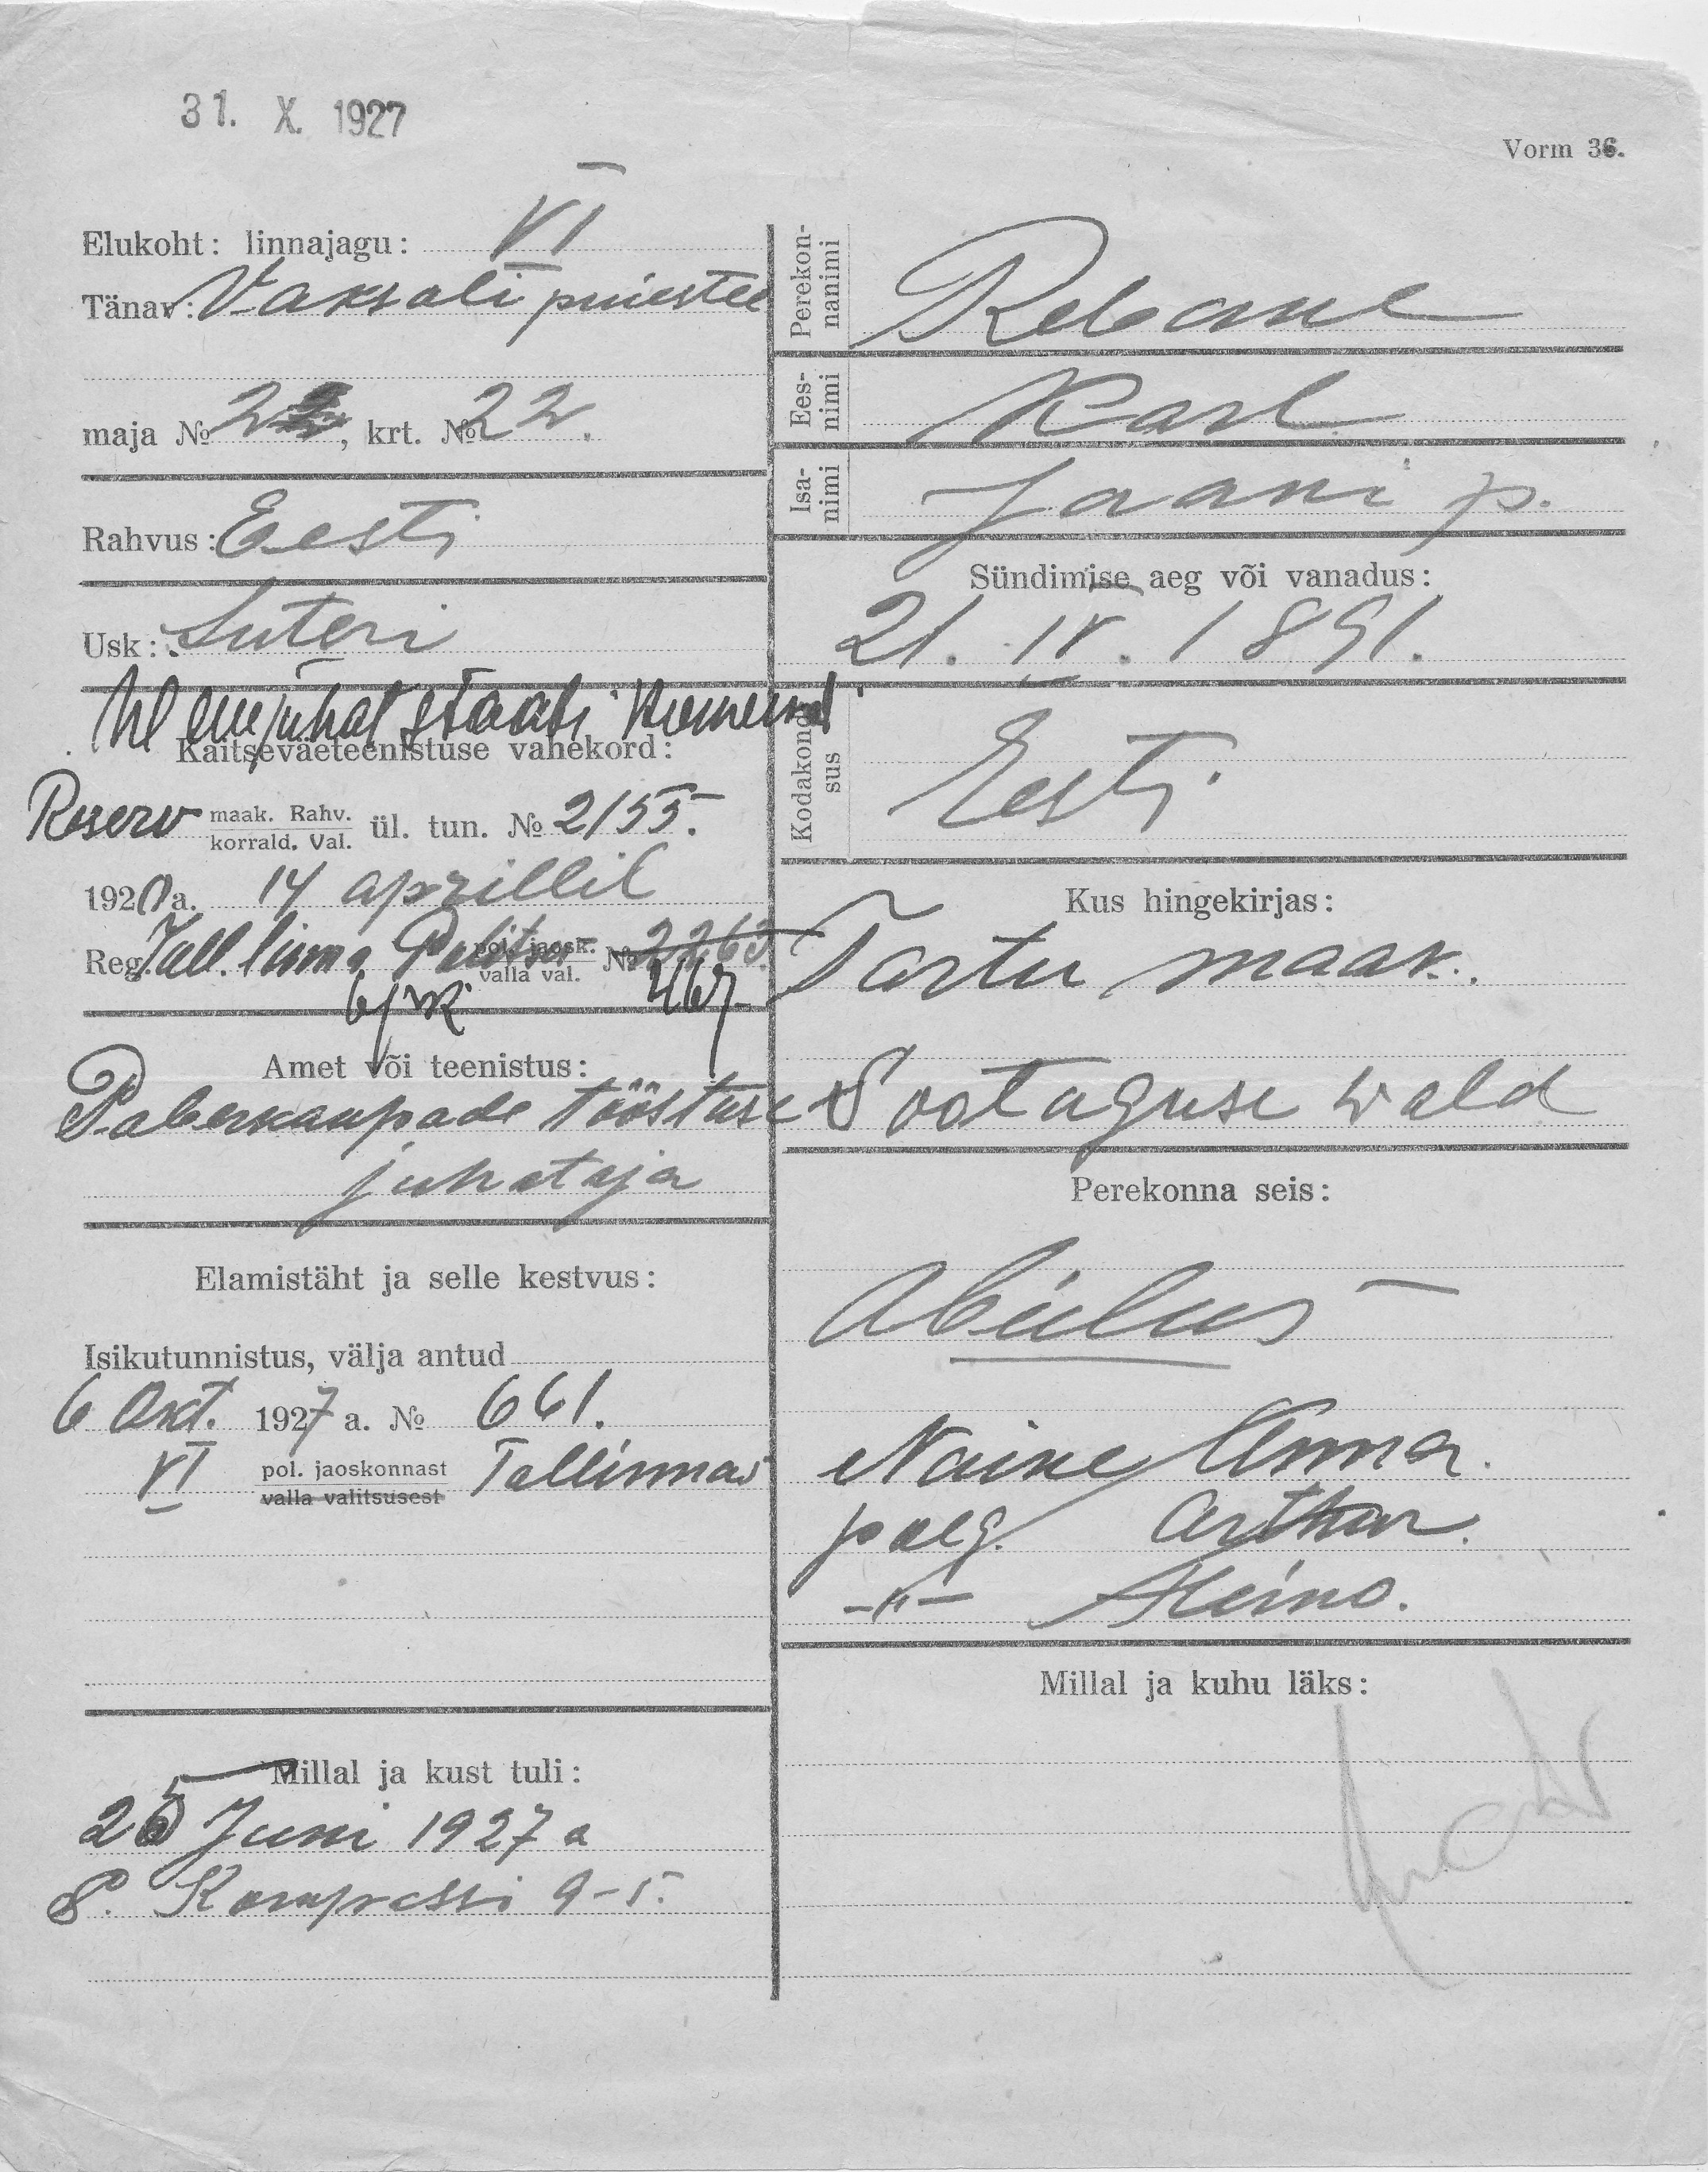 31. X. 1927
Vorm 36.
Elukoht: linnajagu: VI
Tänav: Vaksali puiestee
maja № 2, krt. № 22.
Rahvus: Eesti
Usk: Luteri
staabi
Kaitseväeteenistuse vahekord:
Reserv maak. Rahv. korrald. Val. ül. tun. № 2155.
1920 a. 14 aprillil
Reg. Tall. linna Politsei pol. jaosk. valla val. № 2263.
6 jsk.
Amet või teenistus:
Paberkaupade tööstuse
juhataja
Elamistäht ja selle kestvus:
Isikutunnistus, välja antud
6 Okt. 1927 a. № 661.
VI pol. jaoskonnast valla valitsusest Tallinnas
Millal ja kust tuli:
25 Juni 1927 a
Kompassi 9-5.
Perekonnanimi Rebane
Eesnimi Karl
Isanimi Jaani p.
Sündimise aeg või vanadus:
21. IV. 1891.
Kodakondsus Eesti
Kus hingekirjas:
Tartu maak.
Sootaguse wald
Perekonna seis:
Abielus
Naine Anna.
poeg. Arthur.
-"- Heino.
Millal ja kuhu läks: